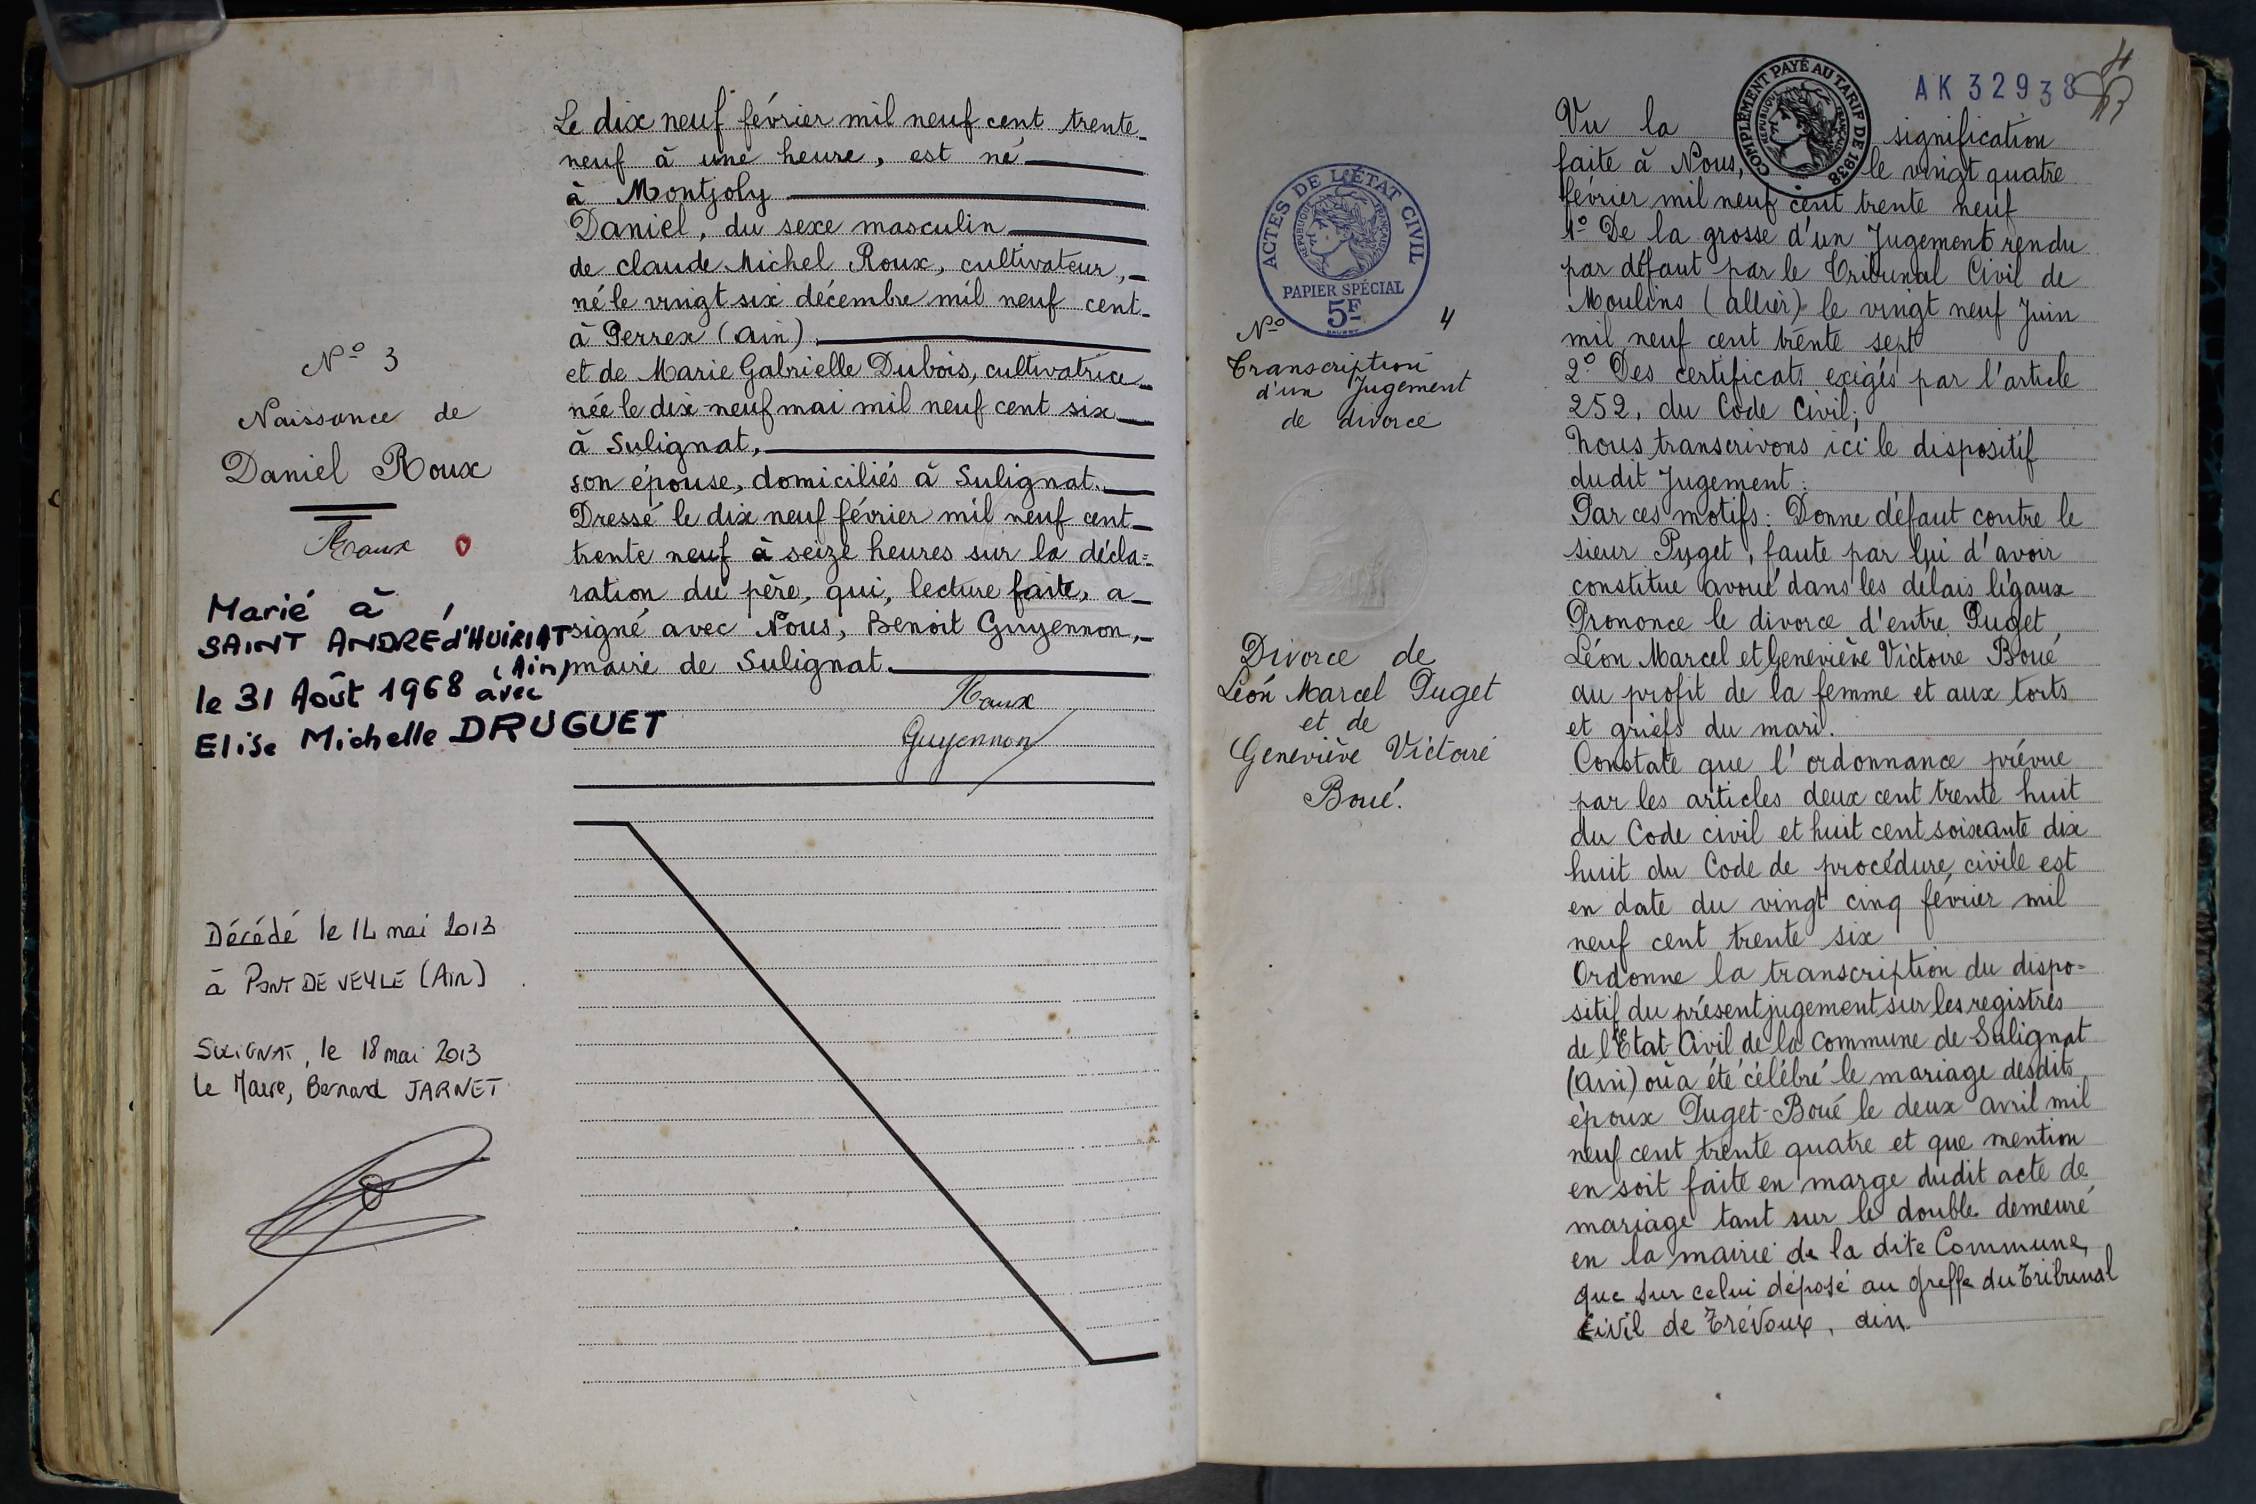 N° 3
Naissance de
Daniel Roux
Roux
Marié à
SAINT ANDRE d'HUIRIAT
(Ain)
le 31 Août 1968 avec
Elise Michelle DRUGUET
Décédé le 14 mai 2013
à PONT DE VEYLE (AIN)
SULIGNAT, le 18 mai 2013
Le Maire, Bernard JARNET
Le dix neuf février mil neuf cent trente
neuf à une heure, est né
à Montjoly
Daniel, du sexe masculin
de claude Michel Roux, cultivateur,
né le vingt six décembre mil neuf cent
à Perrex (Ain)
et de Marie Gabrielle Dubois, cultivatrice
née le dix-neuf mai mil neuf cent six
à Sulignat,
son épouse, domiciliés à Sulignat.
Dressé le dix neuf février mil neuf cent
trente neuf à seize heures sur la décla=
ration du père, qui, lecture faite, a
signé avec Nous, Benoit Guyennon,
maire de Sulignat.
Roux
Guyennon
ACTES DE L'ÉTAT CIVIL
RÉPUBLIQUE FRANÇAISE
PAPIER SPÉCIAL
5F
N° 4
Transcription
d'un Jugement
de divorce
Divorce de
Léon Marcel Puget
et de
Geneviève Victoire
Boué.
COMPLÉMENT PAYÉ AU TARIF DE 1938
RÉPUBLIQUE FRANÇAISE
AK 32938
4
Vu la signification
faite à Nous, le vingt quatre
février mil neuf cent trente neuf
1° De la grosse d'un Jugement rendu
par défaut par le Tribunal Civil de
Moulins (allier) le vingt neuf Juin
mil neuf cent trente sept
2° Des certificats exigés par l'article
252, du Code Civil;
Nous transcrivons ici le dispositif
dudit Jugement:
Par ces motifs: Donne défaut contre le
sieur Puget, faute par lui d'avoir
constitue avoué dans les délais légaux
Prononce le divorce d'entre Puget
Léon Marcel et Geneviève Victoire Boué
au profit de la femme et aux torts
et griefs du mari.
Constate que l'ordonnance prévue
par les articles deux cent trente huit
du Code civil et huit cent soixante dix
huit du Code de procédure civile est
en date du vingt cinq février mil
neuf cent trente six
Ordonne la transcription du dispo=
sitif du présent jugement sur les registres
de l'Etat Civil de la Commune de Sulignat
(Ain) où a été célébré le mariage desdits
époux Puget-Boué le deux avril mil
neuf cent trente quatre et que mention
en soit faite en marge dudit acte de
mariage tant sur le double demeuré
en la mairie de la dite Commune,
que sur celui déposé au greffe du Tribunal
Civil de Trévoux, Ain